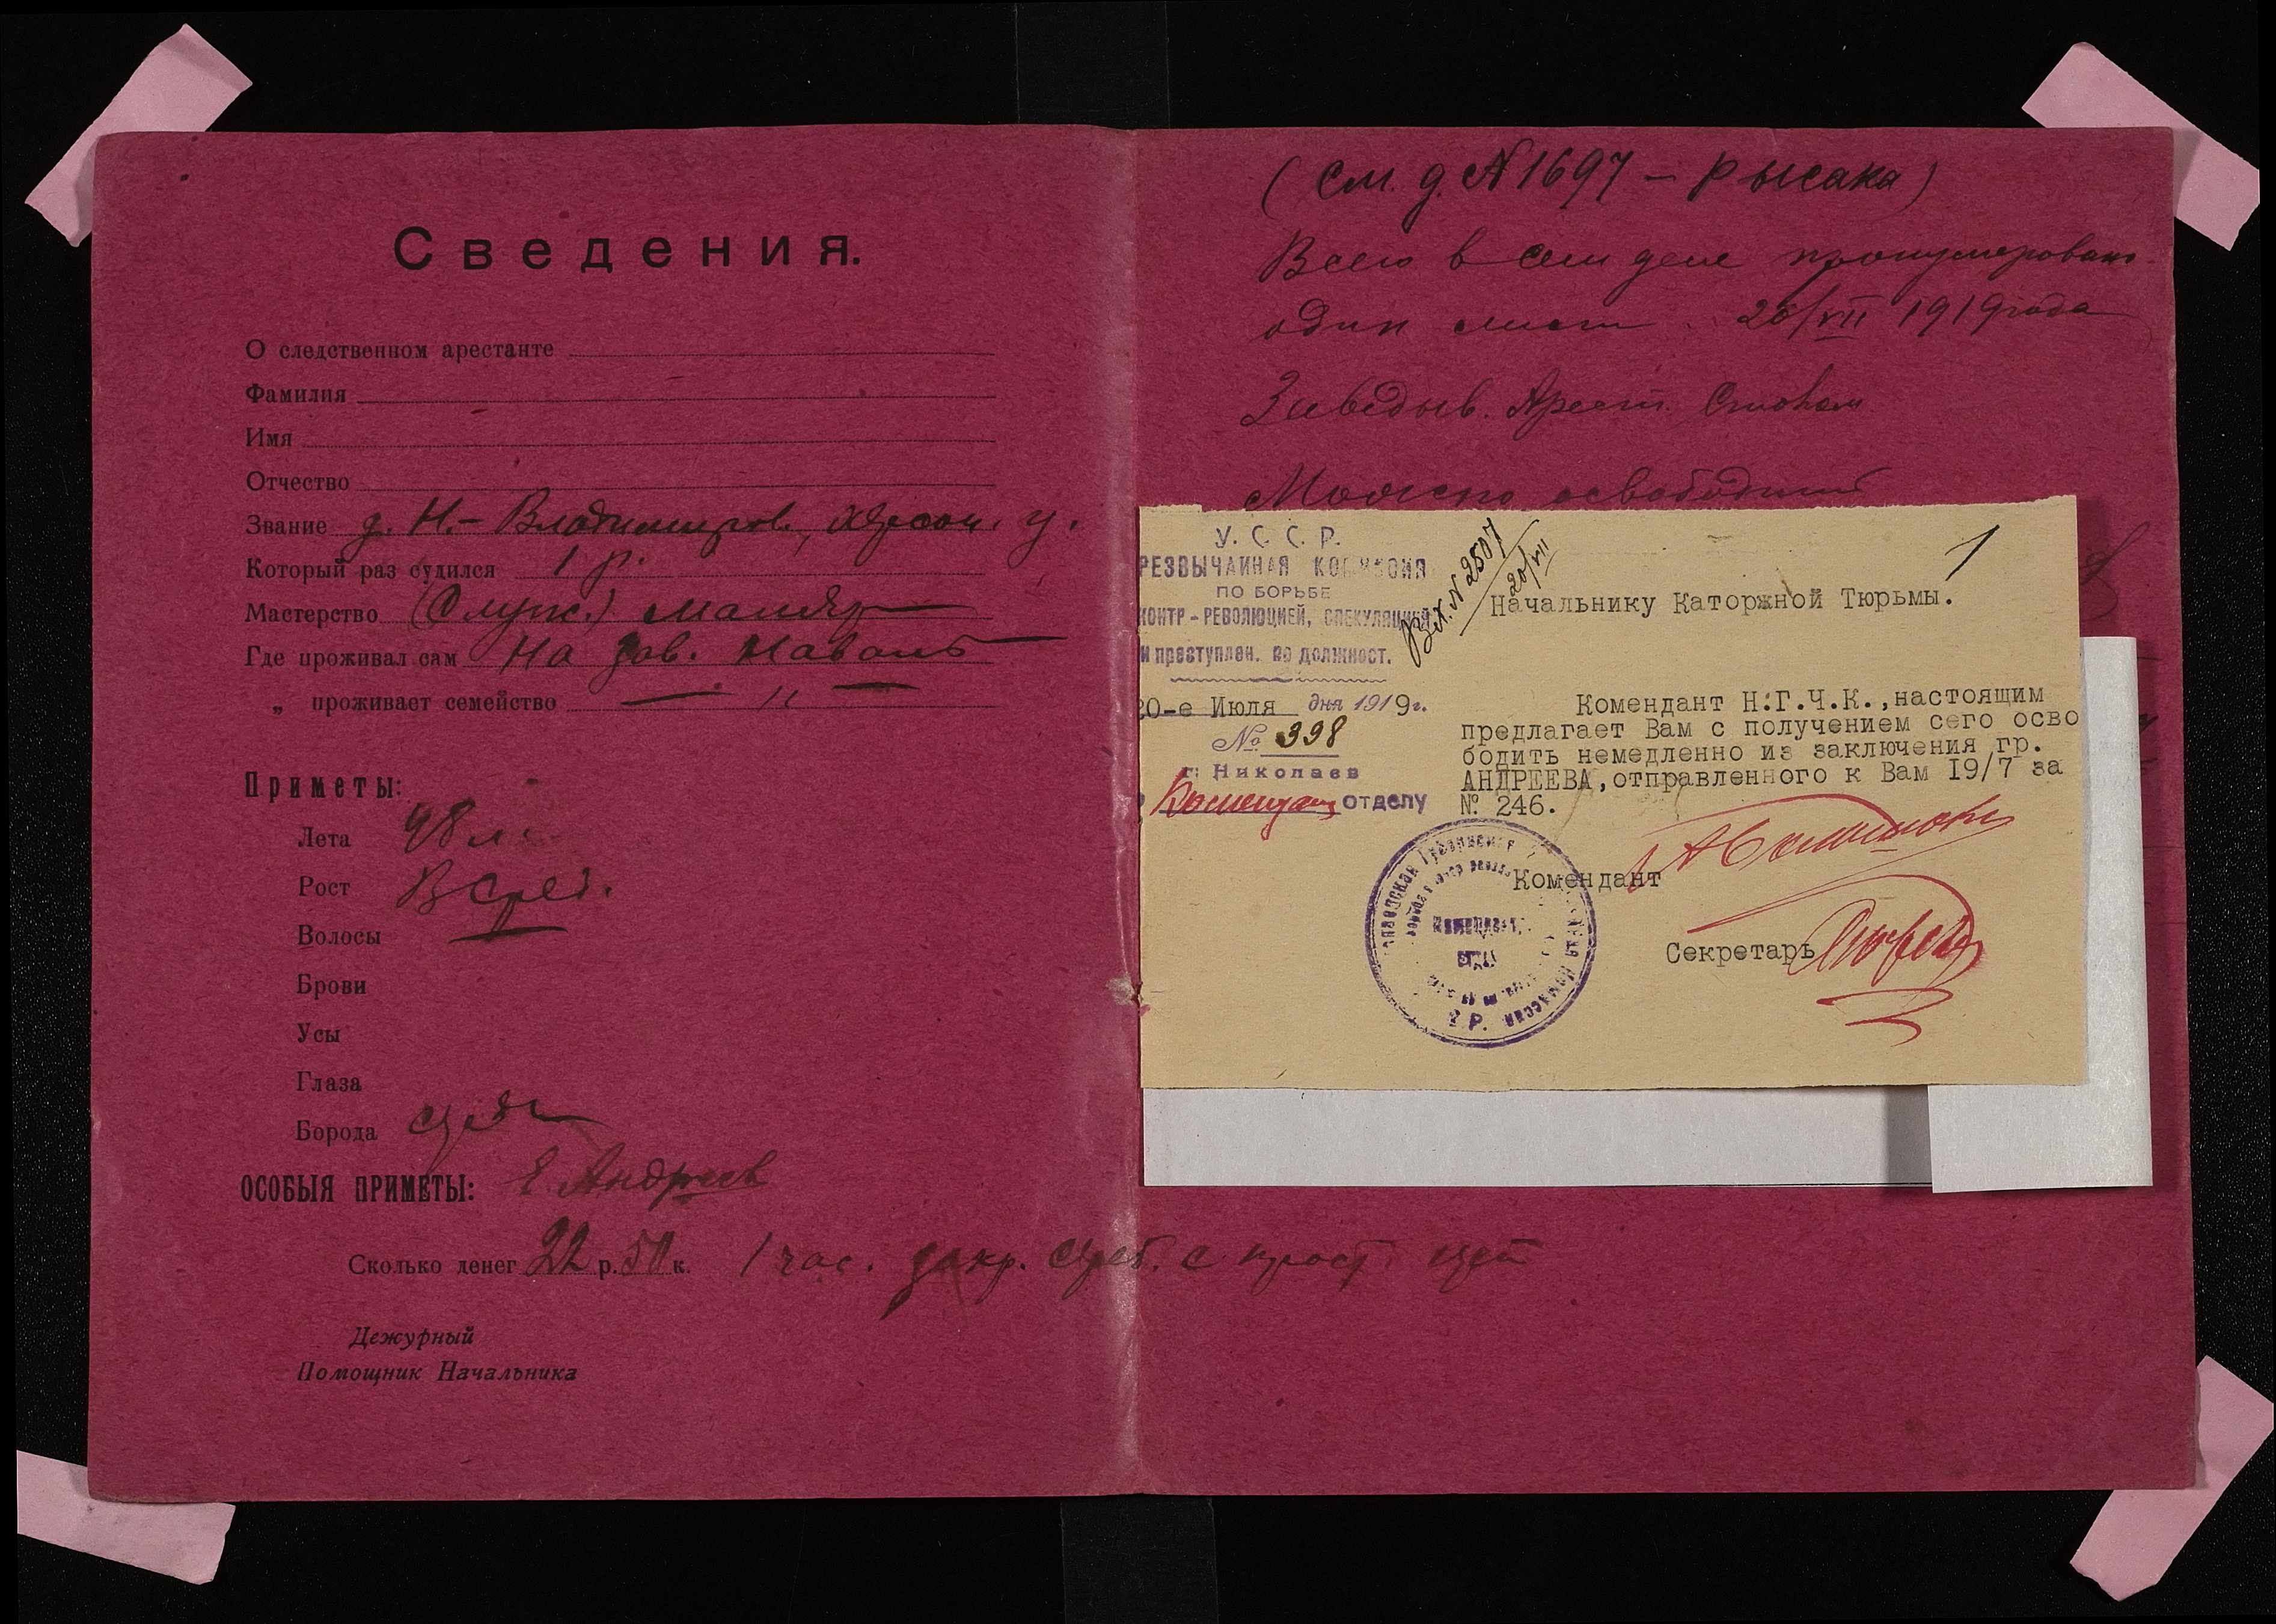 Сведения.
О следственном арестанте
Фамилия
Имя
Отчество
Звание д. Н.- Владимиров., Херсон. у.
Который раз судился 1 р.
Мастерство (Служ.) маляр
Где проживал сам На зав. Наваль
„ проживает семейство — " —
Приметы:
Лета 48 л.
Рост В сред.
Волосы
Брови
Усы
Глаза
Борода
ОСОБЫЯ ПРИМЕТЫ: Е Андреев
Сколько денег 22 р. 50 к. 1 час. закр. сереб. с прост.
Дежурный
Помощник Начальника
(См. д. № 1697 – Рысака)
Всего в сем деле пронумеровано
один лист. 20/VII 1919 года
Заведыв. Арест. Столом
Можно освободить
У. С. С. Р.
РЕЗВЫЧАЙНАЯ КОМИССИЯ
ПО БОРЬБЕ
КОНТР-РЕВОЛЮЦИЕЙ, СПЕКУЛЯЦИЕЙ
и преступлен. по должност.
20-е Июля дня 1919г.
№ 398
г. Николаев
Комендант отделу
Вх. № 2507
20/VII
1
Начальнику Каторжной Тюрьмы.
Комендант Н:Г.Ч.К.,настоящим
предлагает Вам с получением сего осво
бодить немедленно из заключения гр.
АНДРЕЕВА,отправленного к Вам 19/7 за
№ 246.
Комендант
Секретарь